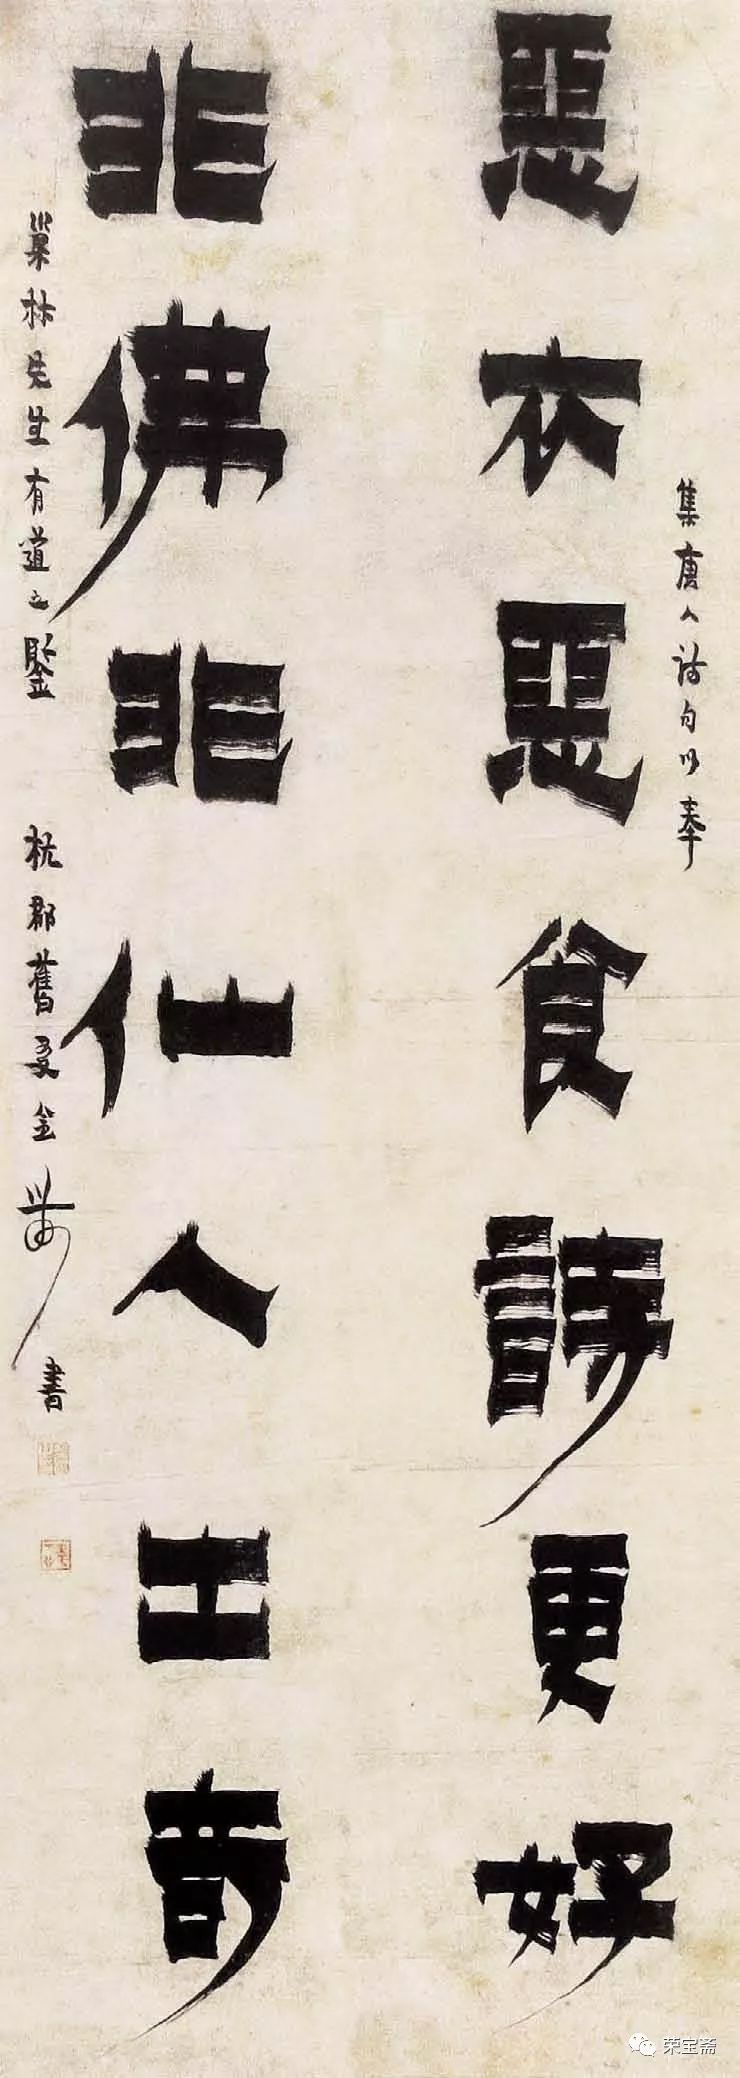 集唐人詩句以奉
惡衣惡食詩更好
非佛非仙人出奇
巢林先生有道之鑒 杭郡舊友金農書
荣宝斋